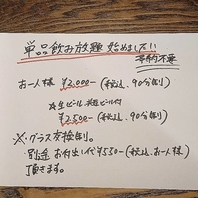 単品飲み放題 始めました!!
予約不要
お一人様 ¥2,000-(税込、90分制)
☆生ビール、瓶ビール付
¥2,500-(税込、90分制)
※・グラス交換制。
・別途 お付出し代¥550-(税込、お一人様)
頂きます。